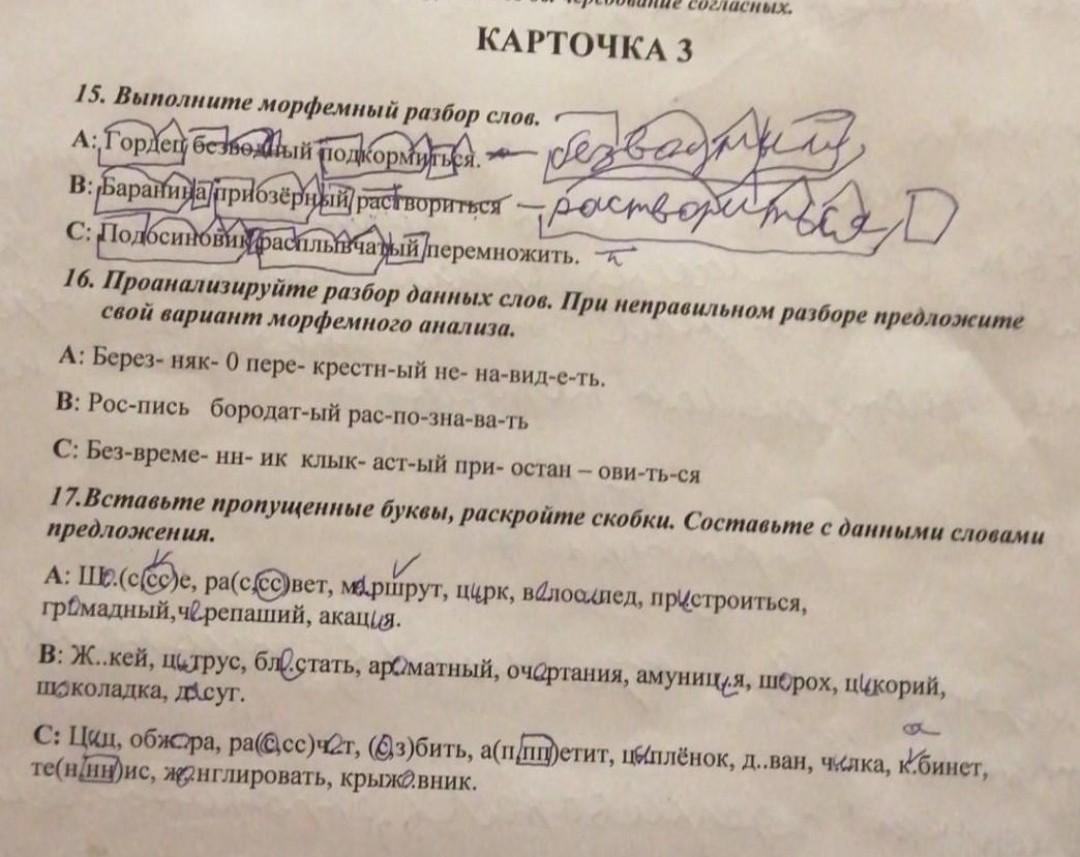 чередование согласных.
КАРТОЧКА 3
15. Выполните морфемный разбор слов.
А: Гордец безводный подкормиться. — безводный,
В: Баранина приозёрный раствориться — раствориться,
С: Подосиновик расплывчатый перемножить.
16. Проанализируйте разбор данных слов. При неправильном разборе предложите
свой вариант морфемного анализа.
А: Берез- няк- 0 пере- крестн-ый не- на-вид-е-ть.
В: Рос-пись бородат-ый рас-по-зна-ва-ть
С: Без-време- нн- ик клык- аст-ый при- остан – ови-ть-ся
17.Вставьте пропущенные буквы, раскройте скобки. Составьте с данными словами
предложения.
А: Шо.(с,сс)е, ра(с,сс)вет, маршрут, цирк, велосипед, пристроиться,
громадный,черепаший, акация.
В: Ж..кей, цитрус, бле.стать, ароматный, очертания, амуниция, шорох, цикорий,
шоколадка, досуг.
а
С: Цыц, обжора, ра(с,сс)чёт, (с,з)бить, а(п,пп)етит, цыплёнок, д..ван, чёлка, к.бинет,
те(н,нн)ис, жонглировать, крыжо.вник.